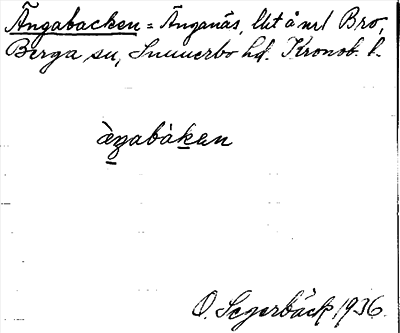 Ängabacken = Änganäs, lht å nr1 Bro,
Berga sn, Sunnerbo hd. Kronob. l.
ägabákan
O. Segerbäck 1936.